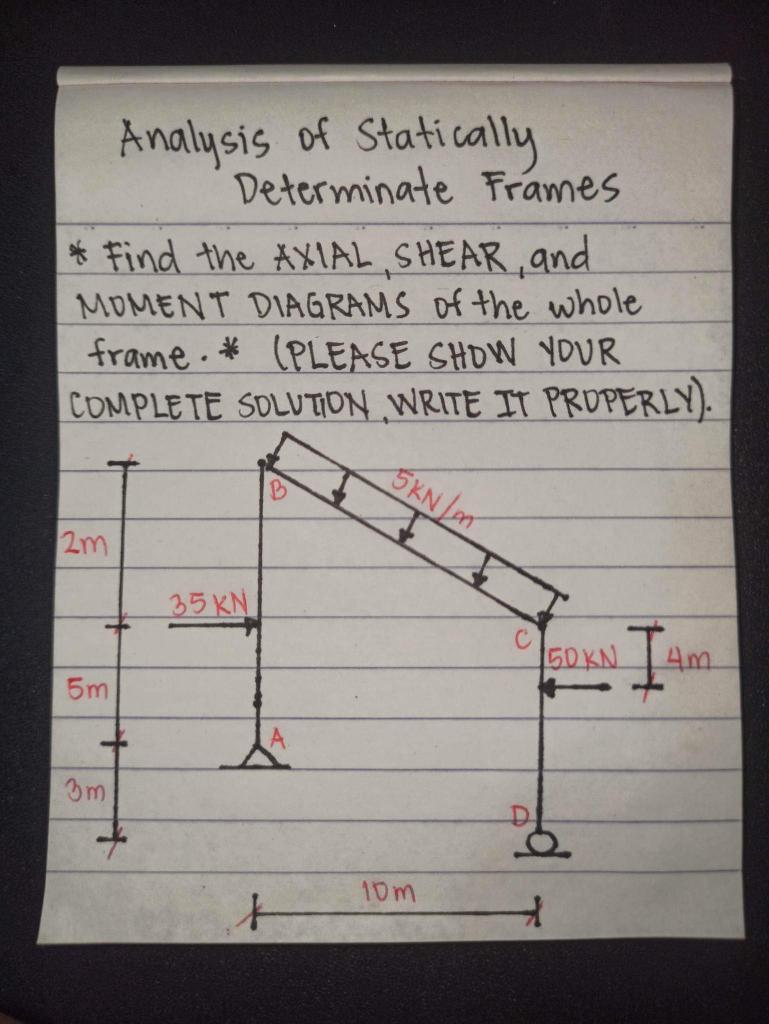 Analysis of Statically
Determinate Frames
* Find the AXIAL, SHEAR, and
MOMENT DIAGRAMS of the whole
frame. * (PLEASE SHOW YOUR
COMPLETE SOLUTION, WRITE IT PROPERLY).
B
5KN/m
2m
35KN
C
50KN
4m
5m
A
3m
D
10m